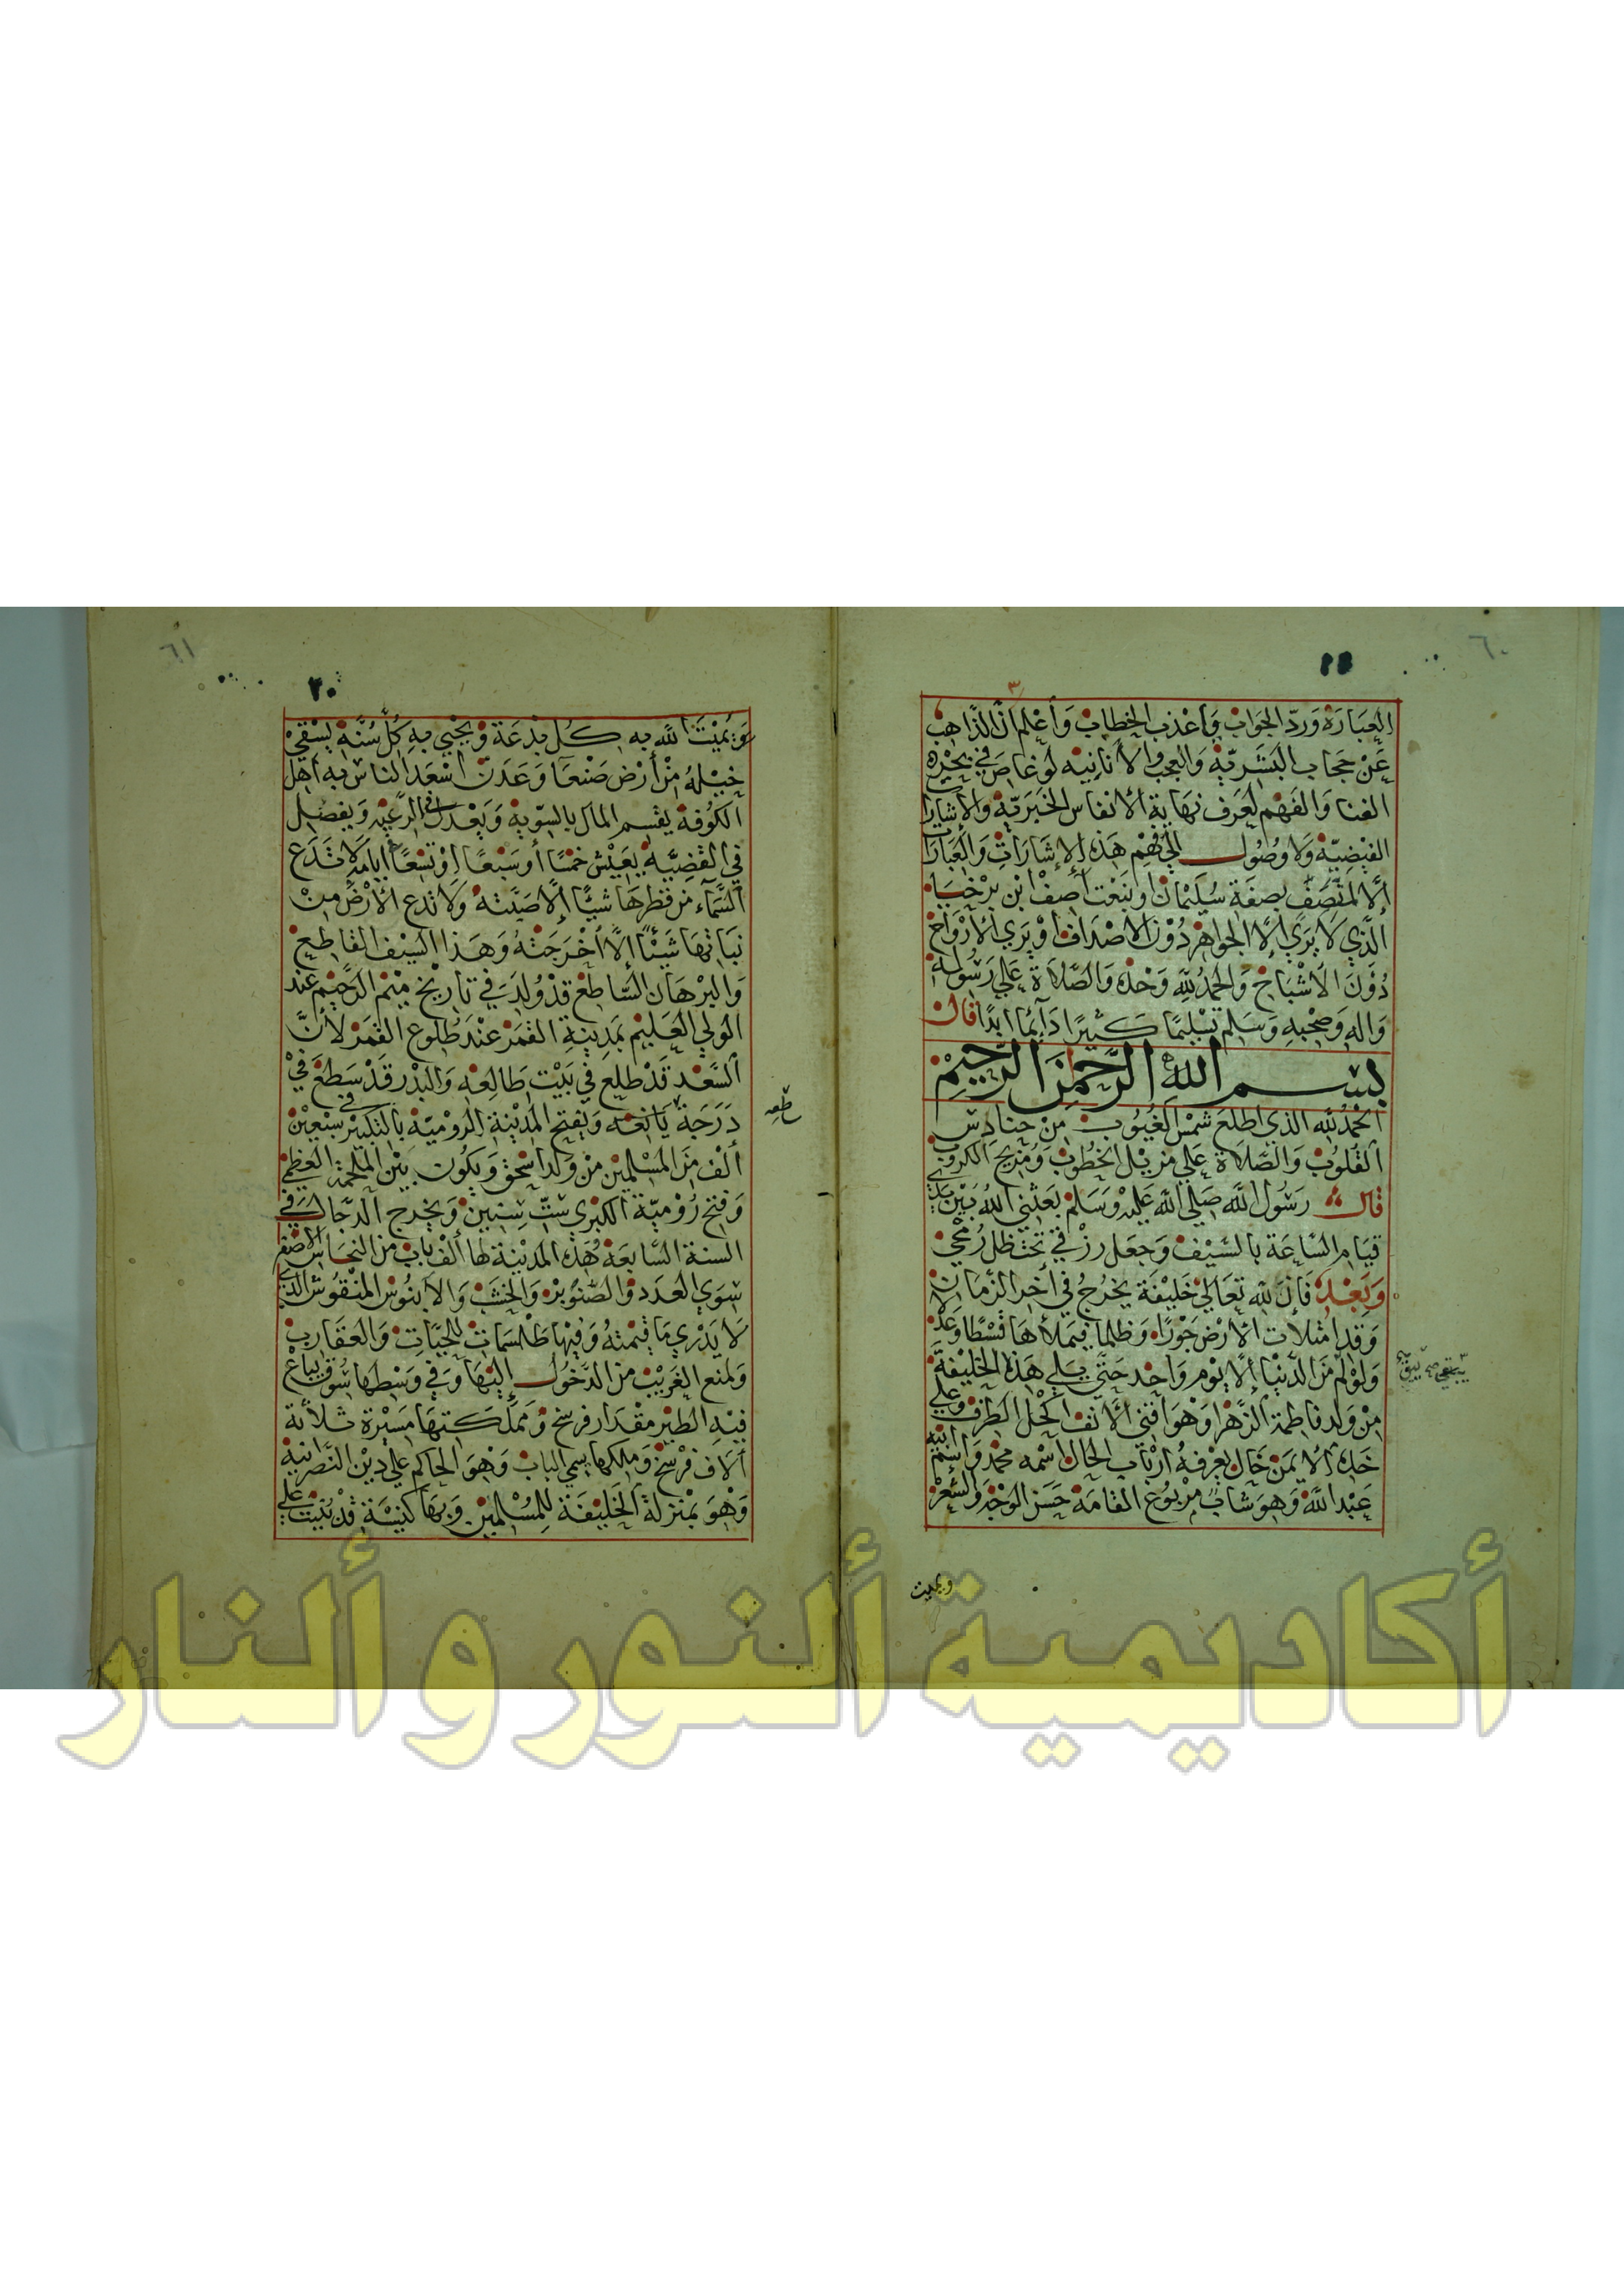 ٦٠
١٩
٣
العبارة وردّ الجواب وأعذب الخطاب وأعلم انّ الذاهب
عن حجاب البشريّة والعجب والأنانيه لو غاص في بحر
الفنا والفهم لعرف نهاية الأنفاس الخبريّة والإشارات
الفيضيّة ولا وصول إلى فهم هذه الإشارات والعبارات
إلّا لمتّصف بصفة سليمان أو بنعت آصف ابن برخيا
الّذي لا يرى إلّا الجواهر دون الاصداف أو يرى الأرواح
دون الأشباح والحمد لله وحده والصّلاة على رسوله
واله وصحبه وسلم تسليما كثيرا دائما ابدا قال
بسم الله الرّحمن الرّحيم
الحمد لله الذي اطلع شمس الغيوب من حنادس
القلوب والصّلاة على مزيل الخطوب ومزيح الكروب
قال رسول الله صلى الله عليه وسلم بعثني الله بين يدي
قيام السّاعة بالسّيف وجعل رزقي تحت ظلّ رمحي
وبعد فانّ لله تعالى خليفة يخرج في آخر الزمان
وقد امتلأت الأرض جورًا وظلما فيملأها قسطا وعدلا
ولو لم من الدّنيا إلّا يوم واحد حتّى يلي هذه الخليفة
من ولد فاطمة الزّهرا وهو اقنى الأنف اكحل الطرف وعلى
خدّه الايمن خال يعرفه أرباب الحال اسمه محمّد واسم ابيه
عبد الله وهو شابّ مربوع القامة حسن الوجه والشّعر
ويميت
٦١
٢٠
ويميت الله به كلّ بدعة ويحيي به كلّ سنّة يسقي
خيله من أرض صنعا وعدن اسعد الناس به أهل
الكوفة يقسم المال بالسّوية ويعدل في الرّعيه ويفصل
في القضيّة يعيش خمسًا أو سبعًا او تسعًا أيامه لا تدع
السّماء من قطرها شيئًا إلّا صبّته ولا تدع الأرض من
نباتها شيئًا إلّا أخرجته وهذا السيف القاطع
والبرهان السّاطع قد ولد في تاريخ ميم الرّحيم عند
الولي العليم بمدينة القمر عند طلوع القمر لأنّ
السّعد قد طلع في بيت طالعه والبدر قد سطع في
درجة يانعه ويفتح المدينة الروميّة بالتكبير في سبعين
ألف من المسلمين من ولد اسحق ويكون بين الملحمة العظمى
وفتح روميّة الكبرى ستّ سنين ويخرج الدّجال في
السنة السّابعة هذه المدينة لها ألف باب من النحاس الاصفر
سوى العدد والصّنوبر والخشب والابنوس المنقوش الذي
لا يدري ما قيمته وفيها طلسمات للحيّات والعقارب
ولمنع الغريب من الدّخول إليها وفي وسطها سوق يباع
فيه الطير مقدار فرسخ ومملكتها مسيرة ثلاثة
آلاف فرسخ وملكها يسمي الباب وهو الحاكم على دين النّصرانية
وهو بمنزلة الخليفة للمسلمين وبها كنيسة قد بنيت على
أكاديمية ألنور و ألنار